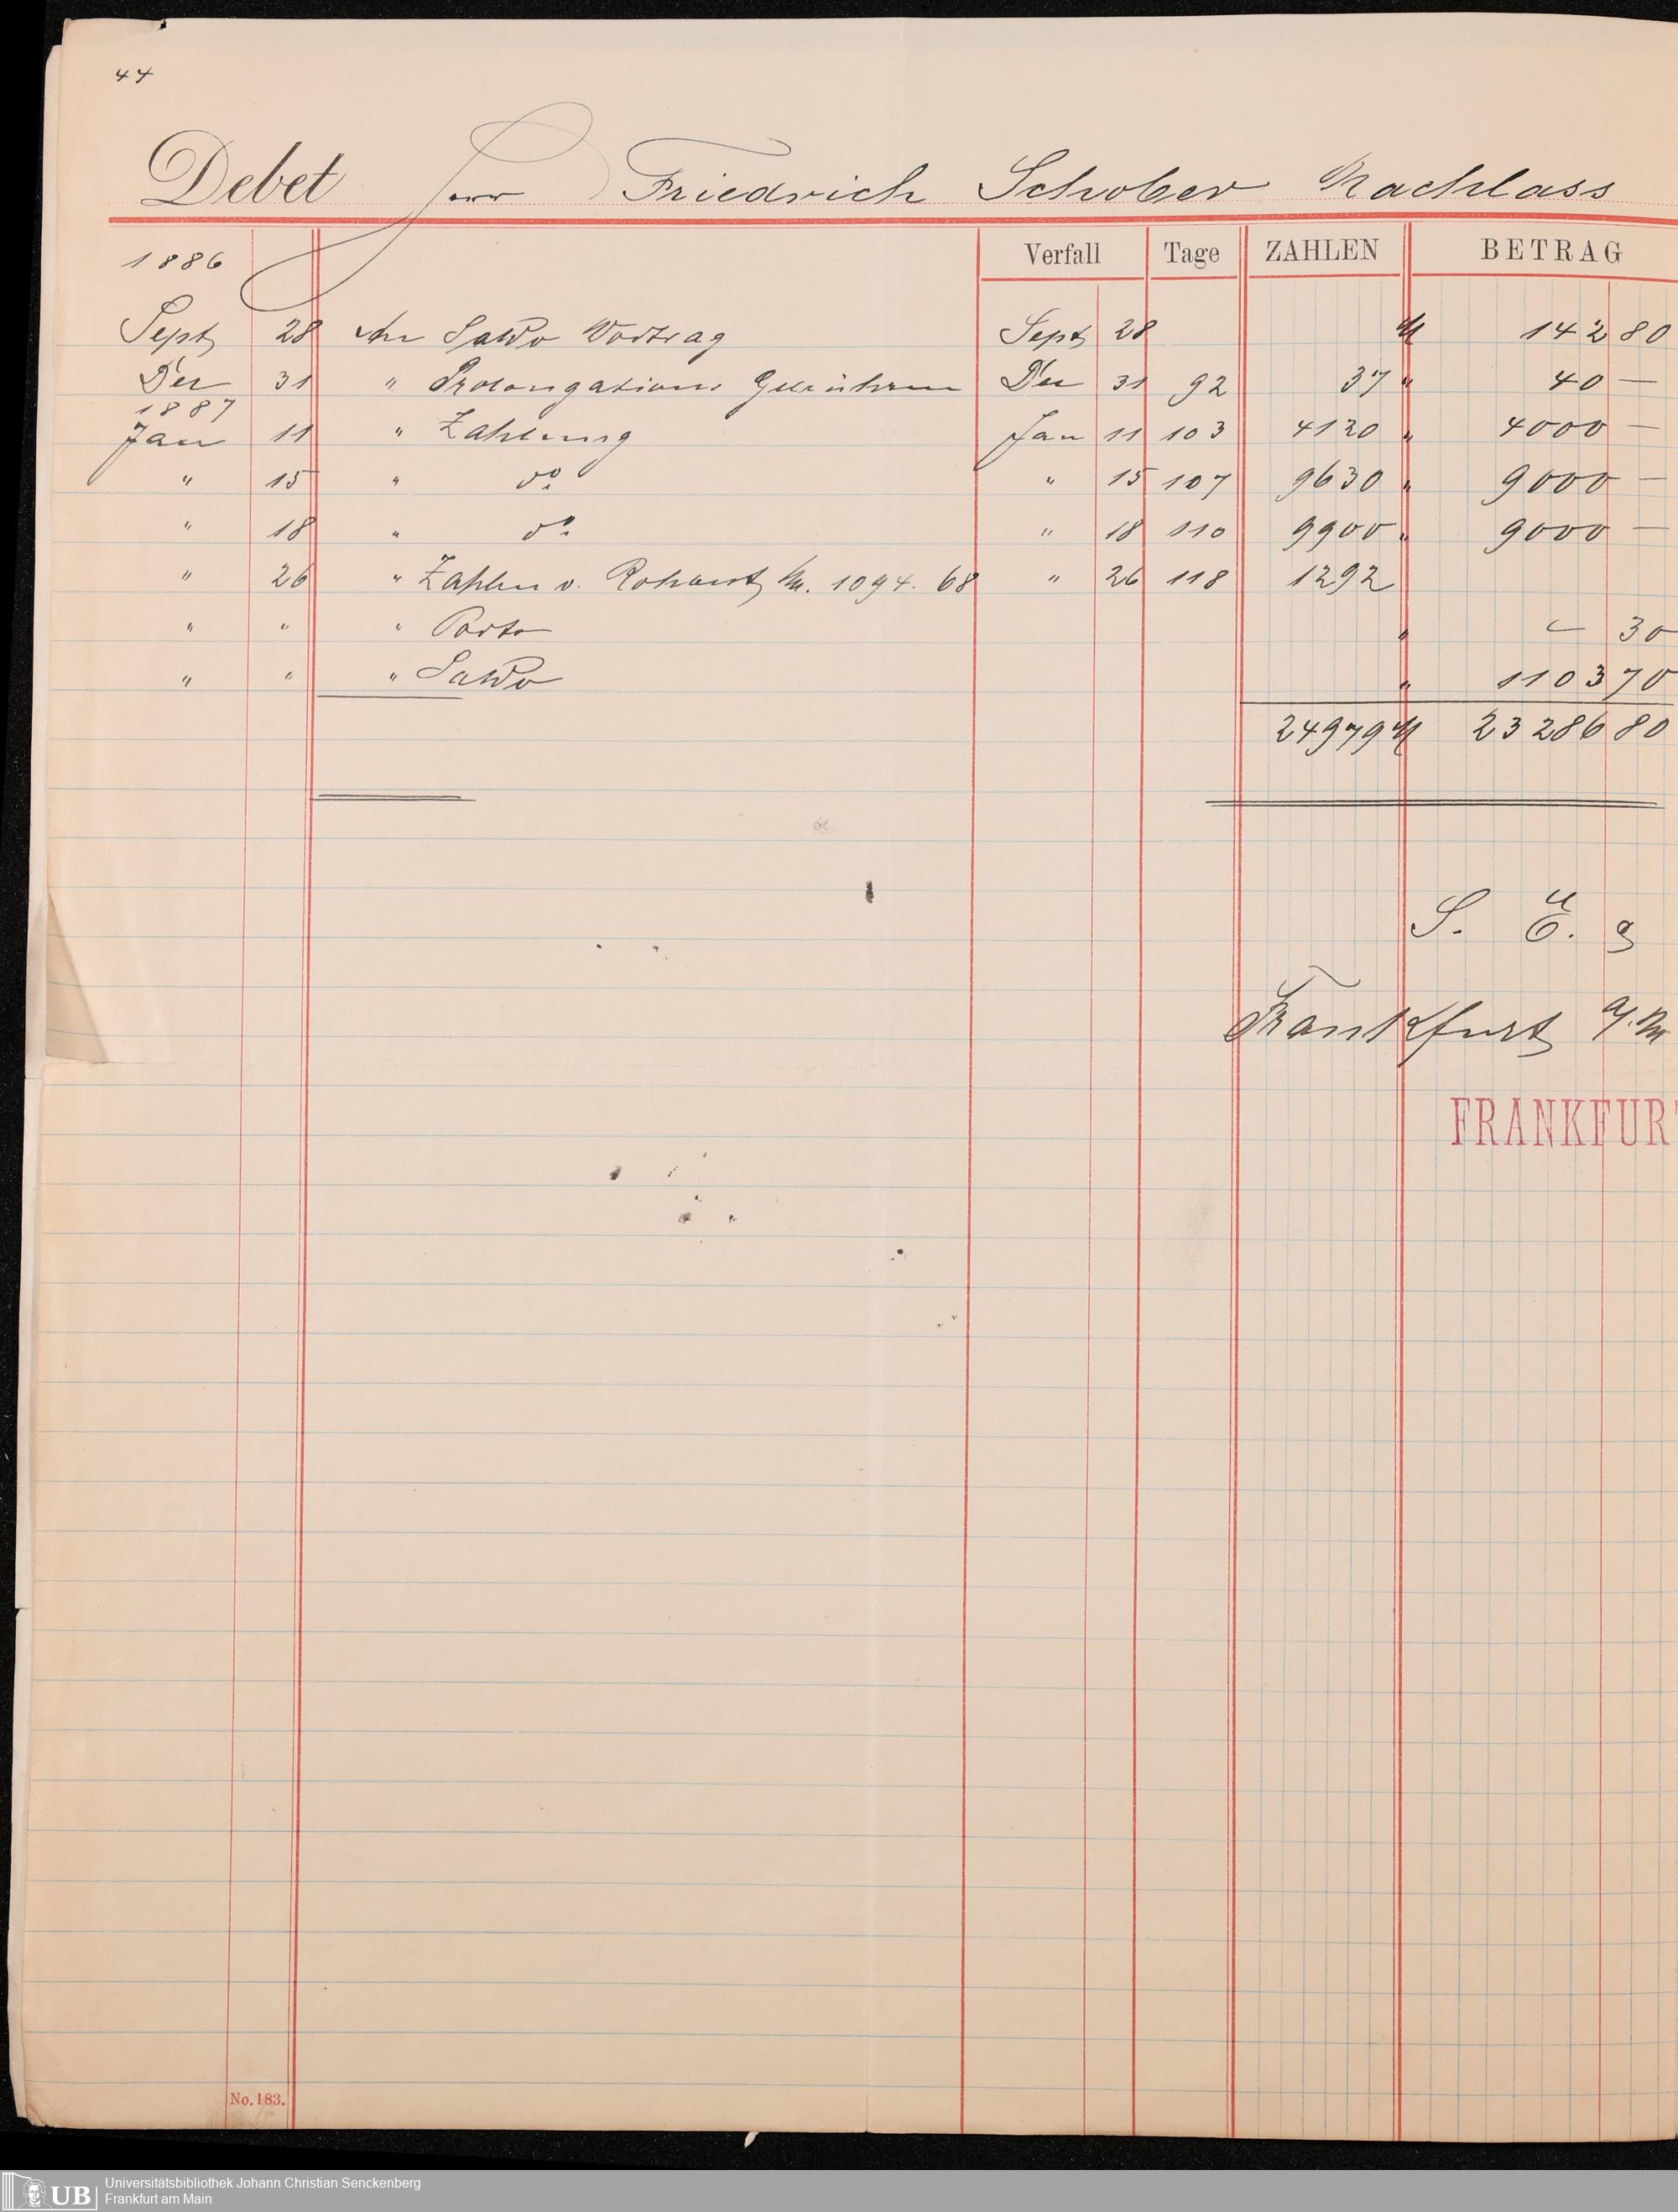 44
Debet Herr Friedrich Schober Nachlass
Verfall Tage ZAHLEN BETRAG
1886
Sept 28 An Saldo Vortrag Sept 28 M 142 80
Dec 31 " Prolongations Gebühren Dec 31 92 37 " 40 —
1887
Jan 11 " Zahlung Jan 11 103 4120 " 4000 —
" 15 " do. " 15 107 9630 " 9000 —
" 18 " do. " 18 110 9900 " 9000 —
" 26 " Zahlen v. Rohbaut M. 1094. 68 " 26 118 1292
" " " Porto " — 30
" " " Saldo " 1103 70
24979 M 23286 80
S. E. &
Frankfurt a/M
FRANKFUR
No. 183.
UB
Universitätsbibliothek Johann Christian Senckenberg
Frankfurt am Main